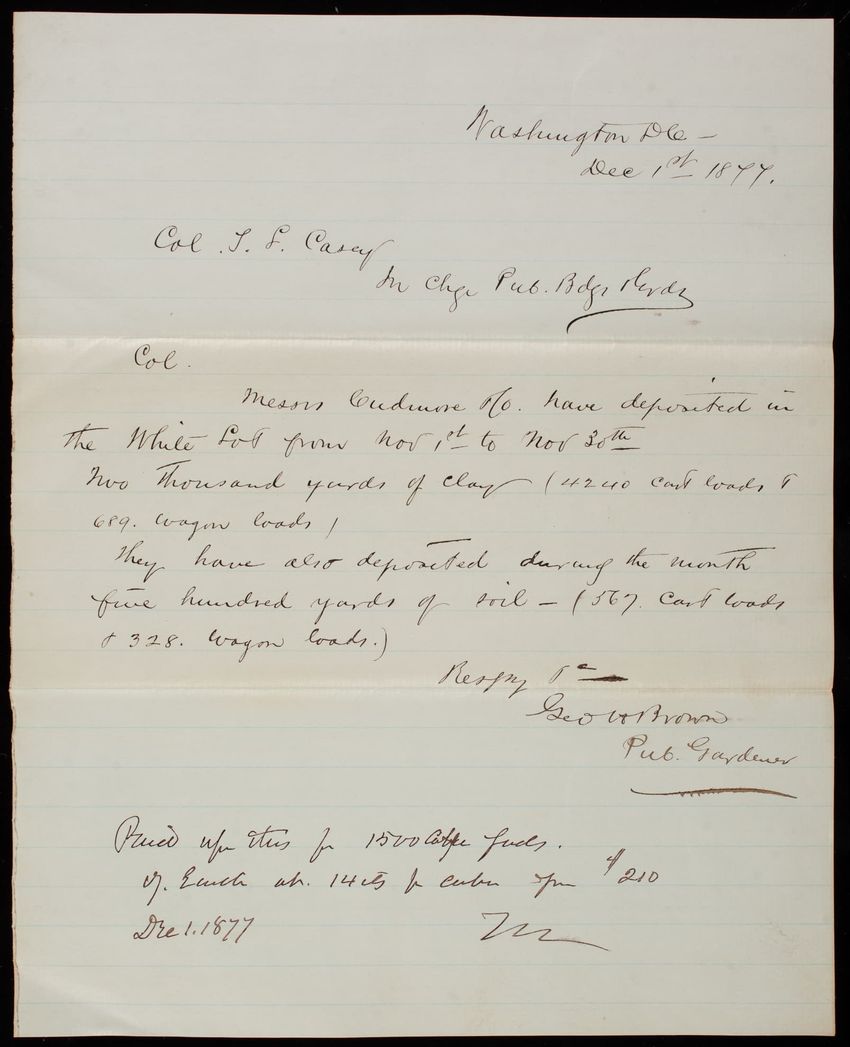 Washington DC –
Dec 1st 1877.
Col. T. L. Casey
In Chge Pub. Bdgs & Grds
Col.
Messrs Cudmore & Co. have deposited in
the White Lot from Nov 1st to Nov 30th
Two Thousand yards of clay (4240 cart loads &
689. wagon loads)
They have also deposited during the month
five hundred yards of soil – (567. cart loads
& 328. wagon loads.)
Respy &c
Geo H Brown
Pub. Gardener
Paid upon this for 1500 yds.
of Earth at. 14 cts pr cubic $210
Dec 1. 1877